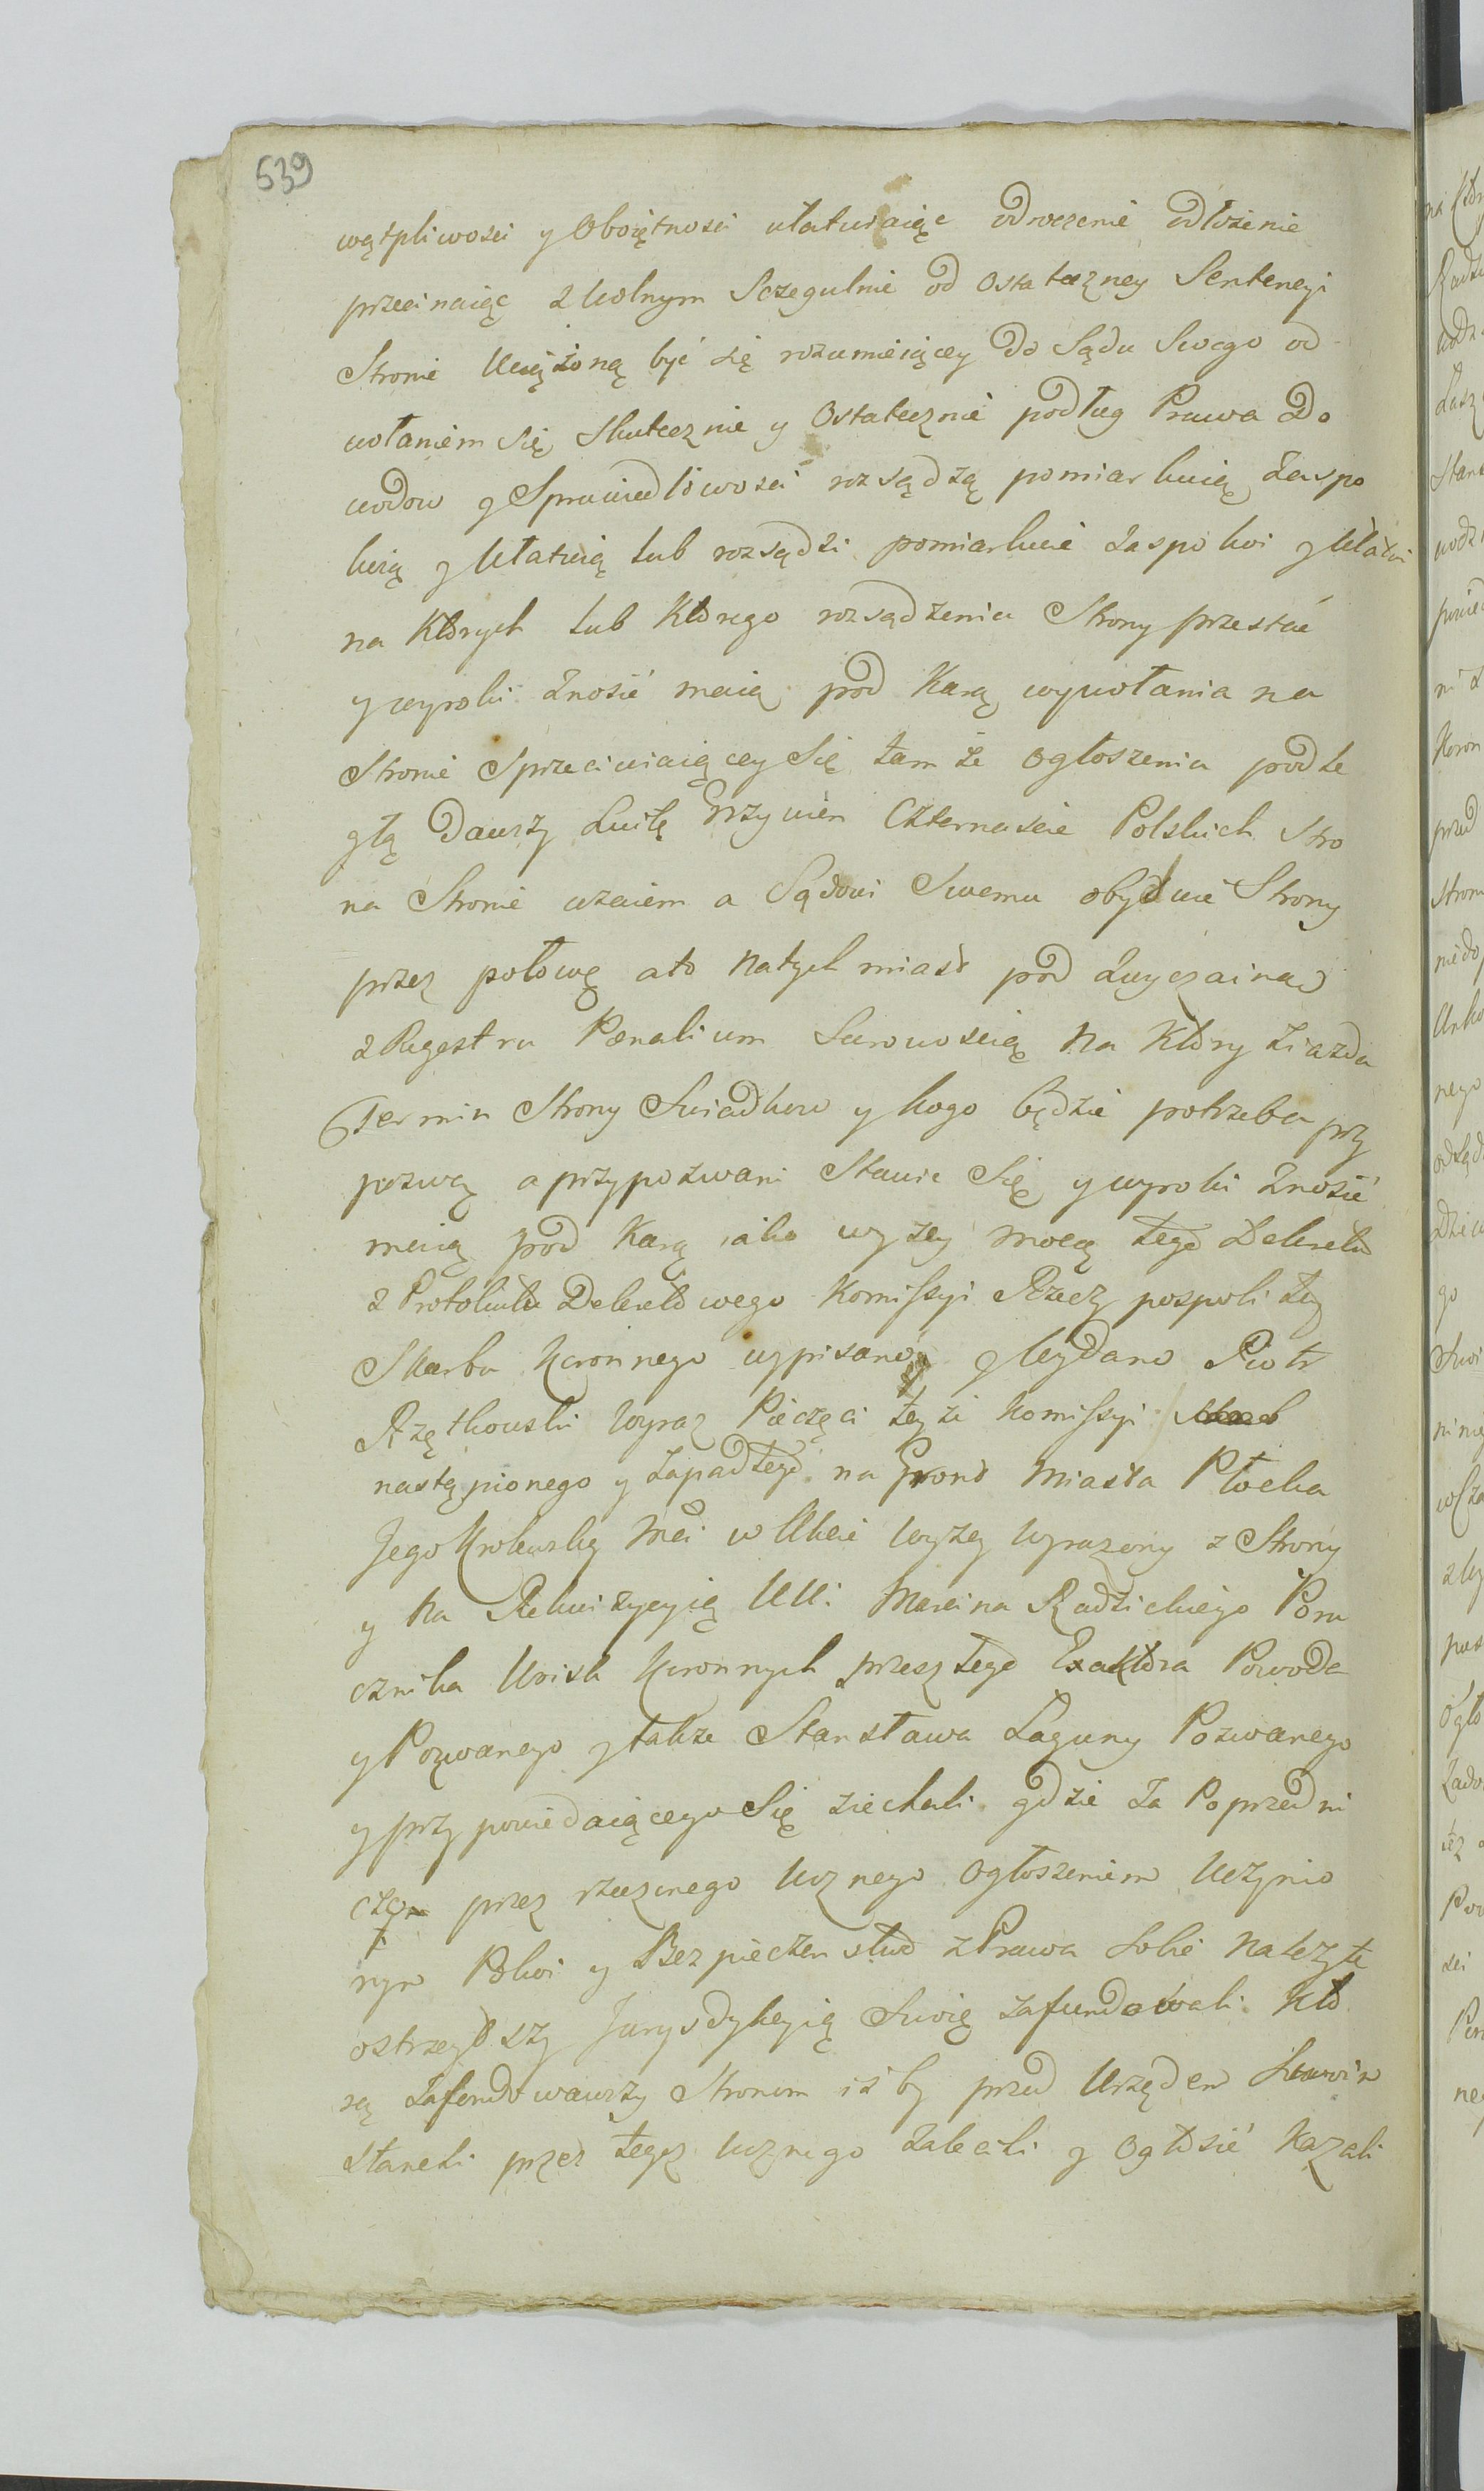 539
wątpliwosci y Oboiętnosci ułatwiaiąc odroczenie odłożenie
przecinaiąc z wolnym Sczegulnie od ostateczney Sentencyi
Stronie Uciążoną być się rozumieiącey do Sądu Swego od
wołaniem się Skutecznie y Ostatecznie podług Prawa Do
wodow y Sprawiedliwosci rozsądzą pomiarkuią Zaspo
koią y Ułatwią lub rozsądzi pomiarkuie zaspokoi y Ułatwi
na Ktorych lub Ktorego rozsądzenia Strony przestać
y wyroki znosić maią pod Karą wywołania na
Stronie Sprzeciwiaiącey Się tam że ogłoszenia podle
głą Dawszy Luitę Grzywien Czternascie Polskich Stro
na Stronie wzaiem a Sądowi Swemu obydwie Strony
przez połowę ato natychmiast pod zwyczainą
z Regestru Pœnalium Surowoscią na Ktory ziazdu
Termin Strony Swiadkow y kogo będzie potrzeba przy
pozwą a przypozwani Stawić Się y wyroki znosić
maią pod Karą iako wyżey mocą tego Dekretu
z Protokułu Dekretowego Komissyi Rzeczypospolitey
Skarbu Koronnego wypisano y Wydano Piotr
Rzętkowski Wyraz Pieczęci teyże Komissyi
nastąpionego y zapadłego na Gront Miasta Płocka
Jego Krolewskiey Mci w Akcie wyżey wyrażony z Strony
y na Rekwizycyią UU: Marcina Radzickiego Poru
cznika Woisk Koronnych przeszłego Exaktora Powoda
y Pozwanego y także Stanisława Laguny Pozwanego
y przypowiedaiącego Się ziechali gdzie za Poprzedni
czym przez rzeczonego Woznego ogłoszeniem Uczynio
nym Pokoi y Bezpieczenstwo z Prawa Sobie należyte
ostrzegłszy Jurysdykcyią Swoię zafundowali Kto
rą Zafundowawszy Stronom iżby przed Urzędem Swoim
staneli przez tegoż woznego zalecili y ogłosić Kazali